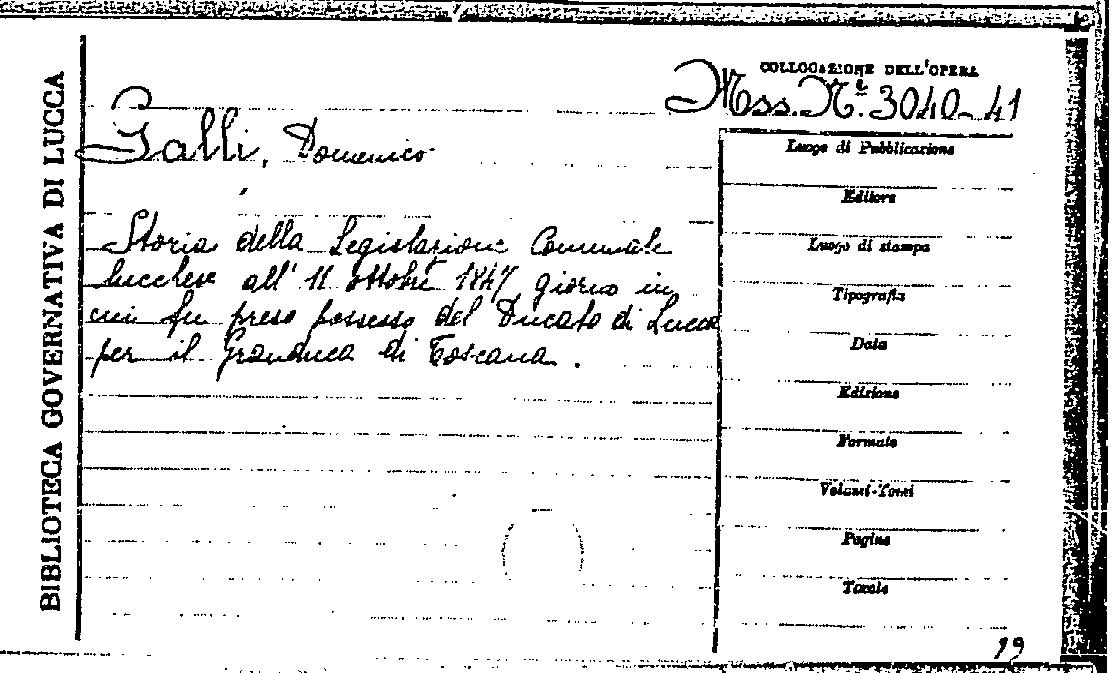 BIBLIOTECA GOVERNATIVA DI LUCCA
COLLOCAZIONE DELL'OPERA
Mss. Nº. 3040-41
Galli, Domenico
Storia della Legislazione Comunale
lucchese all' 11 ottobre 1847 giorno in
cui fu preso possesso del Ducato di Lucca
per il Granduca di Toscana.
Luogo di Pubblicazione
Editore
Luogo di stampa
Tipografia
Data
Edizione
Formato
Volumi-Tomi
Pagine
Tavole
19